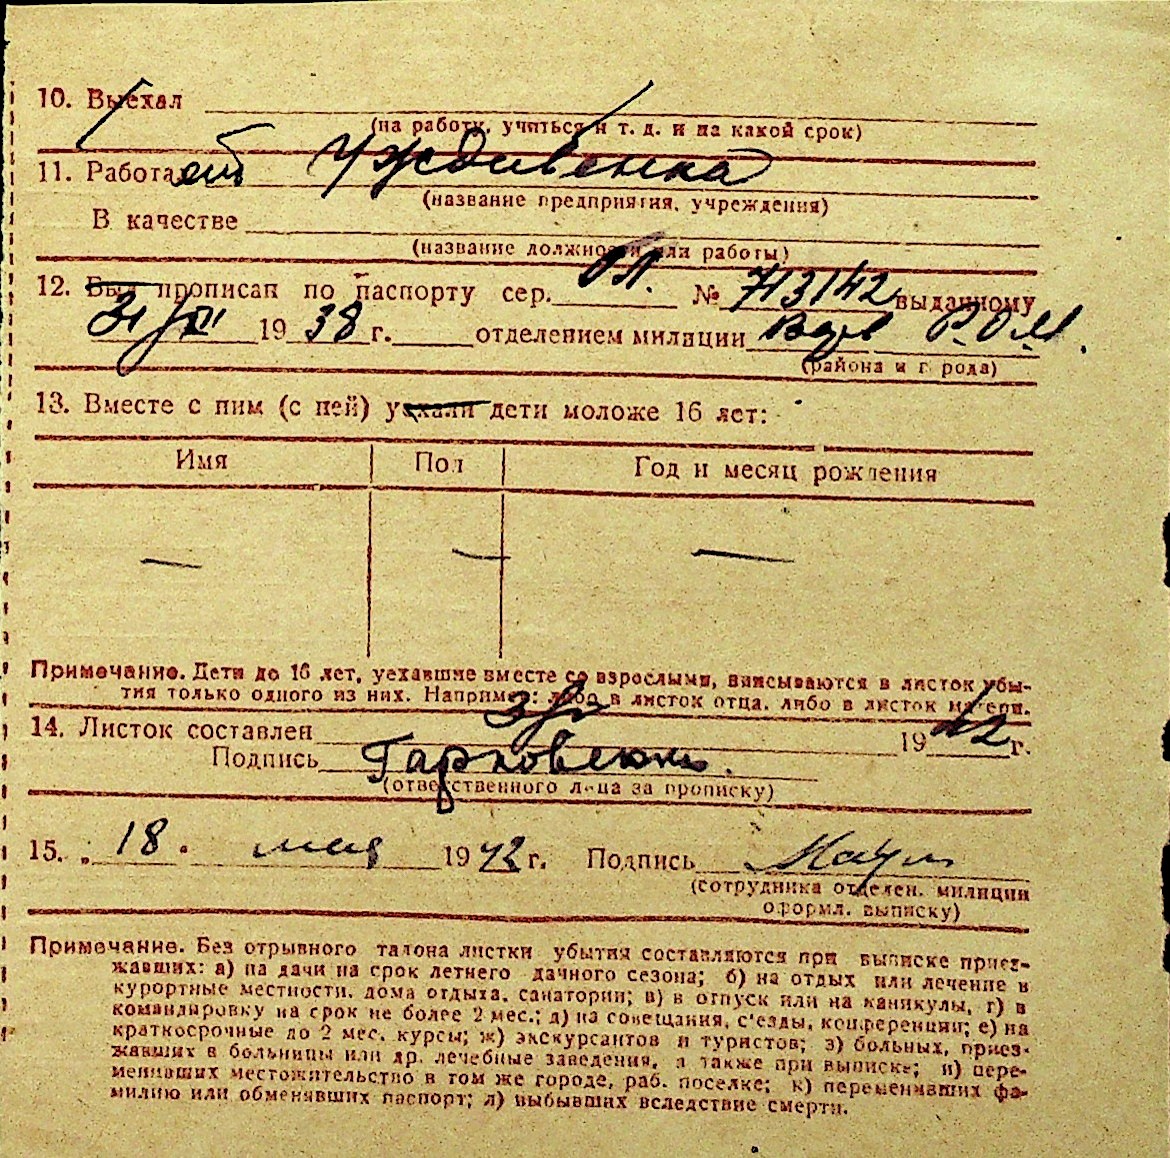 10. Выехал
(на работу, учиться и т. д. и на какой срок)
11. Работает Уждивенка
(название предприятия, учреждения)
В качестве
(название должности или работы)
12. Был прописан по паспорту сер. № 713142 выданному
31/XII 1938 г. отделением милиции Р.О.М.
(района и города)
13. Вместе с ним (с ней) уехали дети моложе 16 лет:
Имя Пол Год и месяц рождения
— — —
Примечание. Дети до 16 лет, уехавшие вместе со взрослыми, вписываются в листок убы-
тия только одного из них. Например: либо в листок отца, либо в листок матери.
14. Листок составлен 1942 г.
Подпись
(ответственного лица за прописку)
15. „18“ мая 1942 г. Подпись
(сотрудника отделен. милиции
оформл. выписку)
Примечание. Без отрывного талона листки убытия составляются при выписке приез-
жавших: а) на дачи на срок летнего дачного сезона; б) на отдых или лечение в
курортные местности, дома отдыха, санатории; в) в отпуск или на каникулы, г) в
командировку на срок не более 2 мес.; д) на совещания, с'езды, конференции; е) на
краткосрочные до 2 мес. курсы; ж) экскурсантов и туристов; з) больных, приез-
жавших в больницы или др. лечебные заведения, а также при выписке; и) пере-
менивших местожительство в том же городе, раб. поселке; к) переменивших фа-
милию или обменявших паспорт; л) выбывших вследствие смерти.